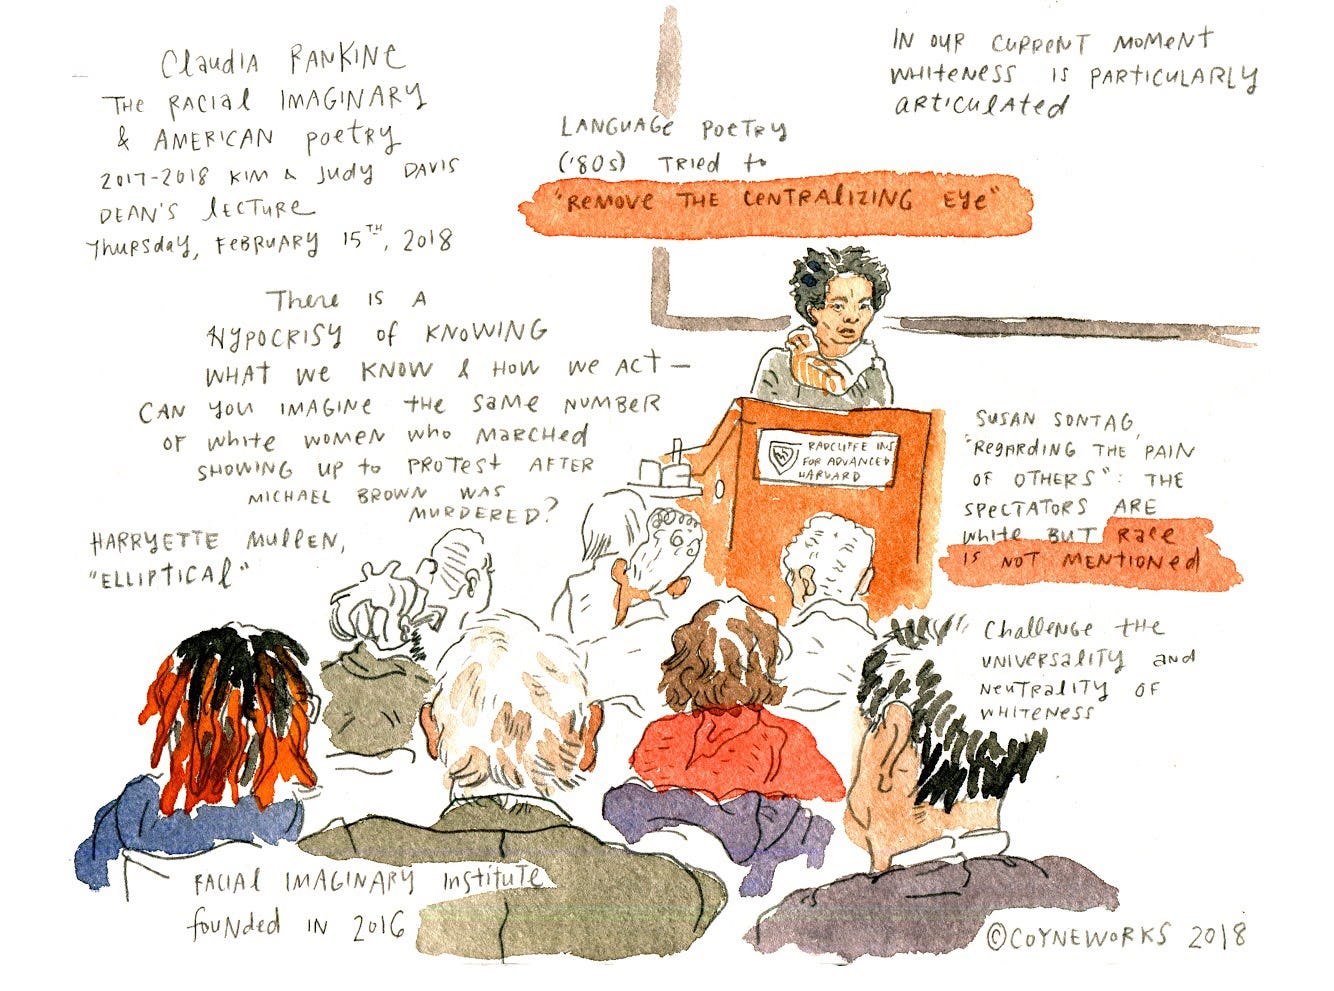 Claudia Rankine
The Racial Imaginary
& American Poetry
2017-2018 Kim & Judy Davis
Dean's Lecture
Thursday, February 15TH, 2018
In our current moment
whiteness is particularly
articulated
Language Poetry
('80s) tried to
"remove the centralizing eye"
There is a
hypocrisy of knowing
what we know & how we act —
can you imagine the same number
of white women who marched
showing up to protest after
Michael Brown was
murdered?
Harryette Mullen,
"Elliptical"
Radcliffe Ins
for Advanced
Harvard
Susan Sontag,
"Regarding the Pain
of Others": the
spectators are
white but race
is not mentioned
Challenge the
universality and
neutrality of
whiteness
Racial Imaginary Institute
founded in 2016
©Coyneworks 2018